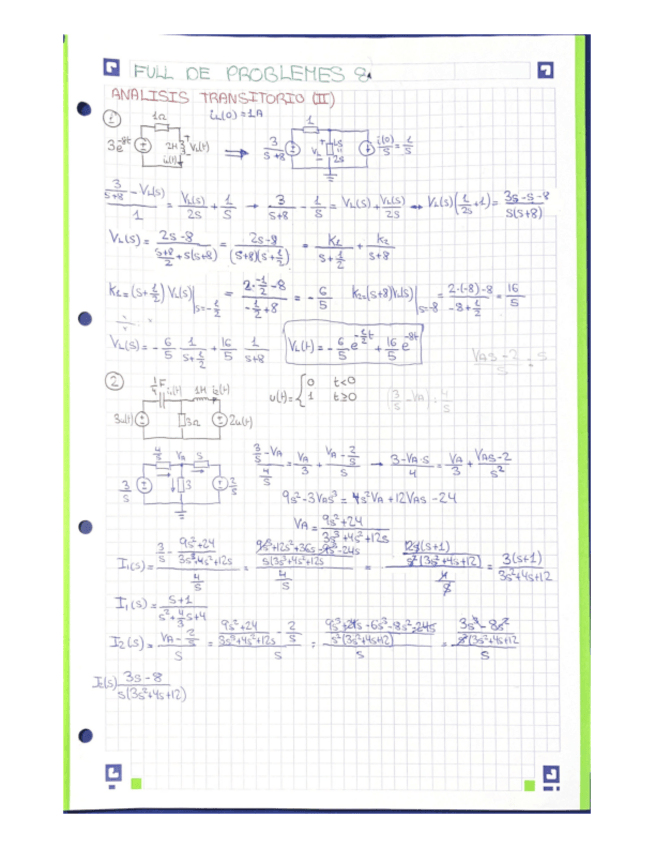 FULL DE PROBLEMES 8.
ANALISIS TRANSITORIO (II)
① iL(0)=1A
1Ω 1
3e^-8t 2H VL(t) iL(t) ⟹ 3/(s+8) VL 2s i(0)/s = 1/s
(3/(s+8) - VL(s))/1 = VL(s)/2s + 1/s → 3/(s+8) - 1/s = VL(s) + VL(s)/2s → VL(s)(1/2s + 1) = (3s-s-8)/(s(s+8))
VL(s) = (2s-8)/((s+8)/2 + s(s+8)) = (2s-8)/((s+8)(s+1/2)) = K1/(s+1/2) + K2/(s+8)
K1 = (s+1/2) VL(s)|s=-1/2 = (2·-1/2-8)/(-1/2+8) = -6/5 K2 = (s+8)VL(s)|s=-8 = (2·(-8)-8)/(-8+1/2) = 16/5
VL(s) = -6/5 1/(s+1/2) + 16/5 1/(s+8) VL(t) = -6/5 e^-1/2t + 16/5 e^-8t
② 1/4F i1(t) 1H i2(t) u(t) = { 0 t<0
1 t≥0
3u(t) 3Ω 2u(t)
4/s VA s
3/s 3 2/s
(3/s - VA)/(4/s) = VA/3 + (VA - 2/s)/s → (3-VA·s)/4 = VA/3 + (VAs-2)/s²
9s²-3VAs³ = 4s²VA+12VAs-24
VA = (9s²+24)/(3s³+4s²+12s)
I1(s) = (3/s - (9s²+24)/(3s³+4s²+12s))/(4/s) = ((9s³+12s²+36s-9s³-24s)/(s(3s³+4s²+12s)))/(4/s) = (12s(s+1)/(s²(3s²+4s+12)))/(4/s) = 3(s+1)/(3s²+4s+12)
I1(s) = (s+1)/(s²+4/3s+4)
I2(s) = (VA - 2/s)/s = ((9s²+24)/(3s³+4s²+12s) - 2/s)/s = ((9s³+24s-6s³-8s²-24s)/(s²(3s²+4s+12)))/s = ((3s³-8s²)/(s²(3s²+4s+12)))/s
I2(s) (3s-8)/(s(3s²+4s+12))